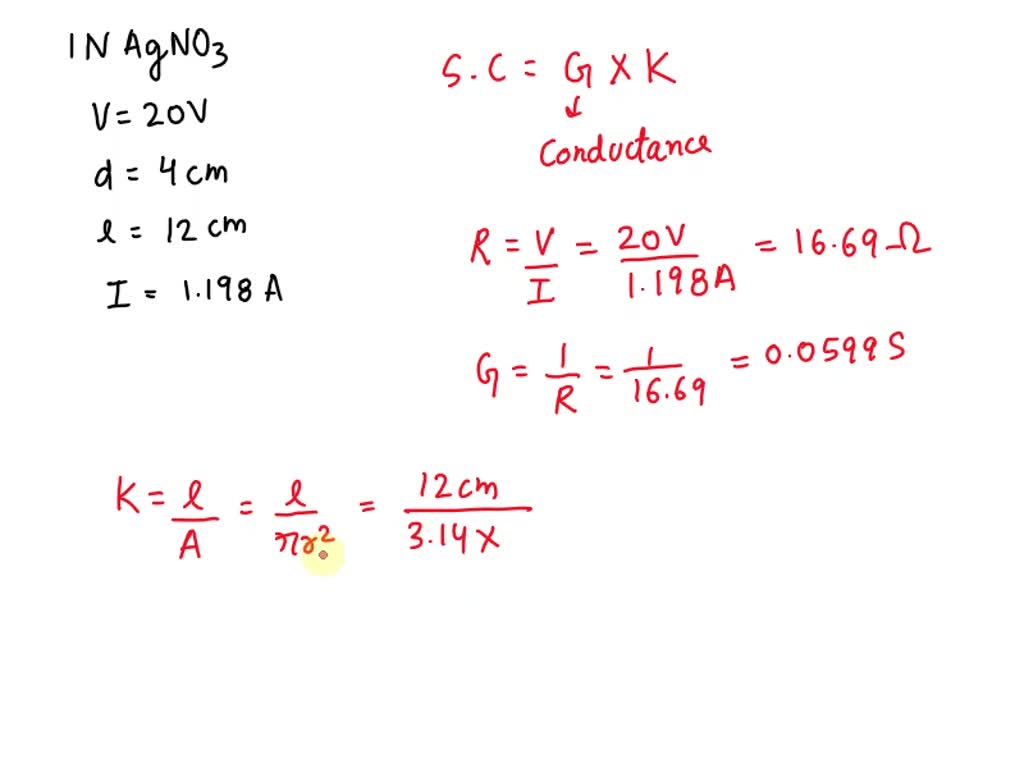 1N AgNO3
V = 20V
d = 4 cm
l = 12 cm
I = 1.198 A
S.C = G X K
↓
Conductance
R = V/I = 20V/1.198A = 16.69 Ω
G = 1/R = 1/16.69 = 0.0599 S
K = l/A = l/πr² = 12cm/3.14 X